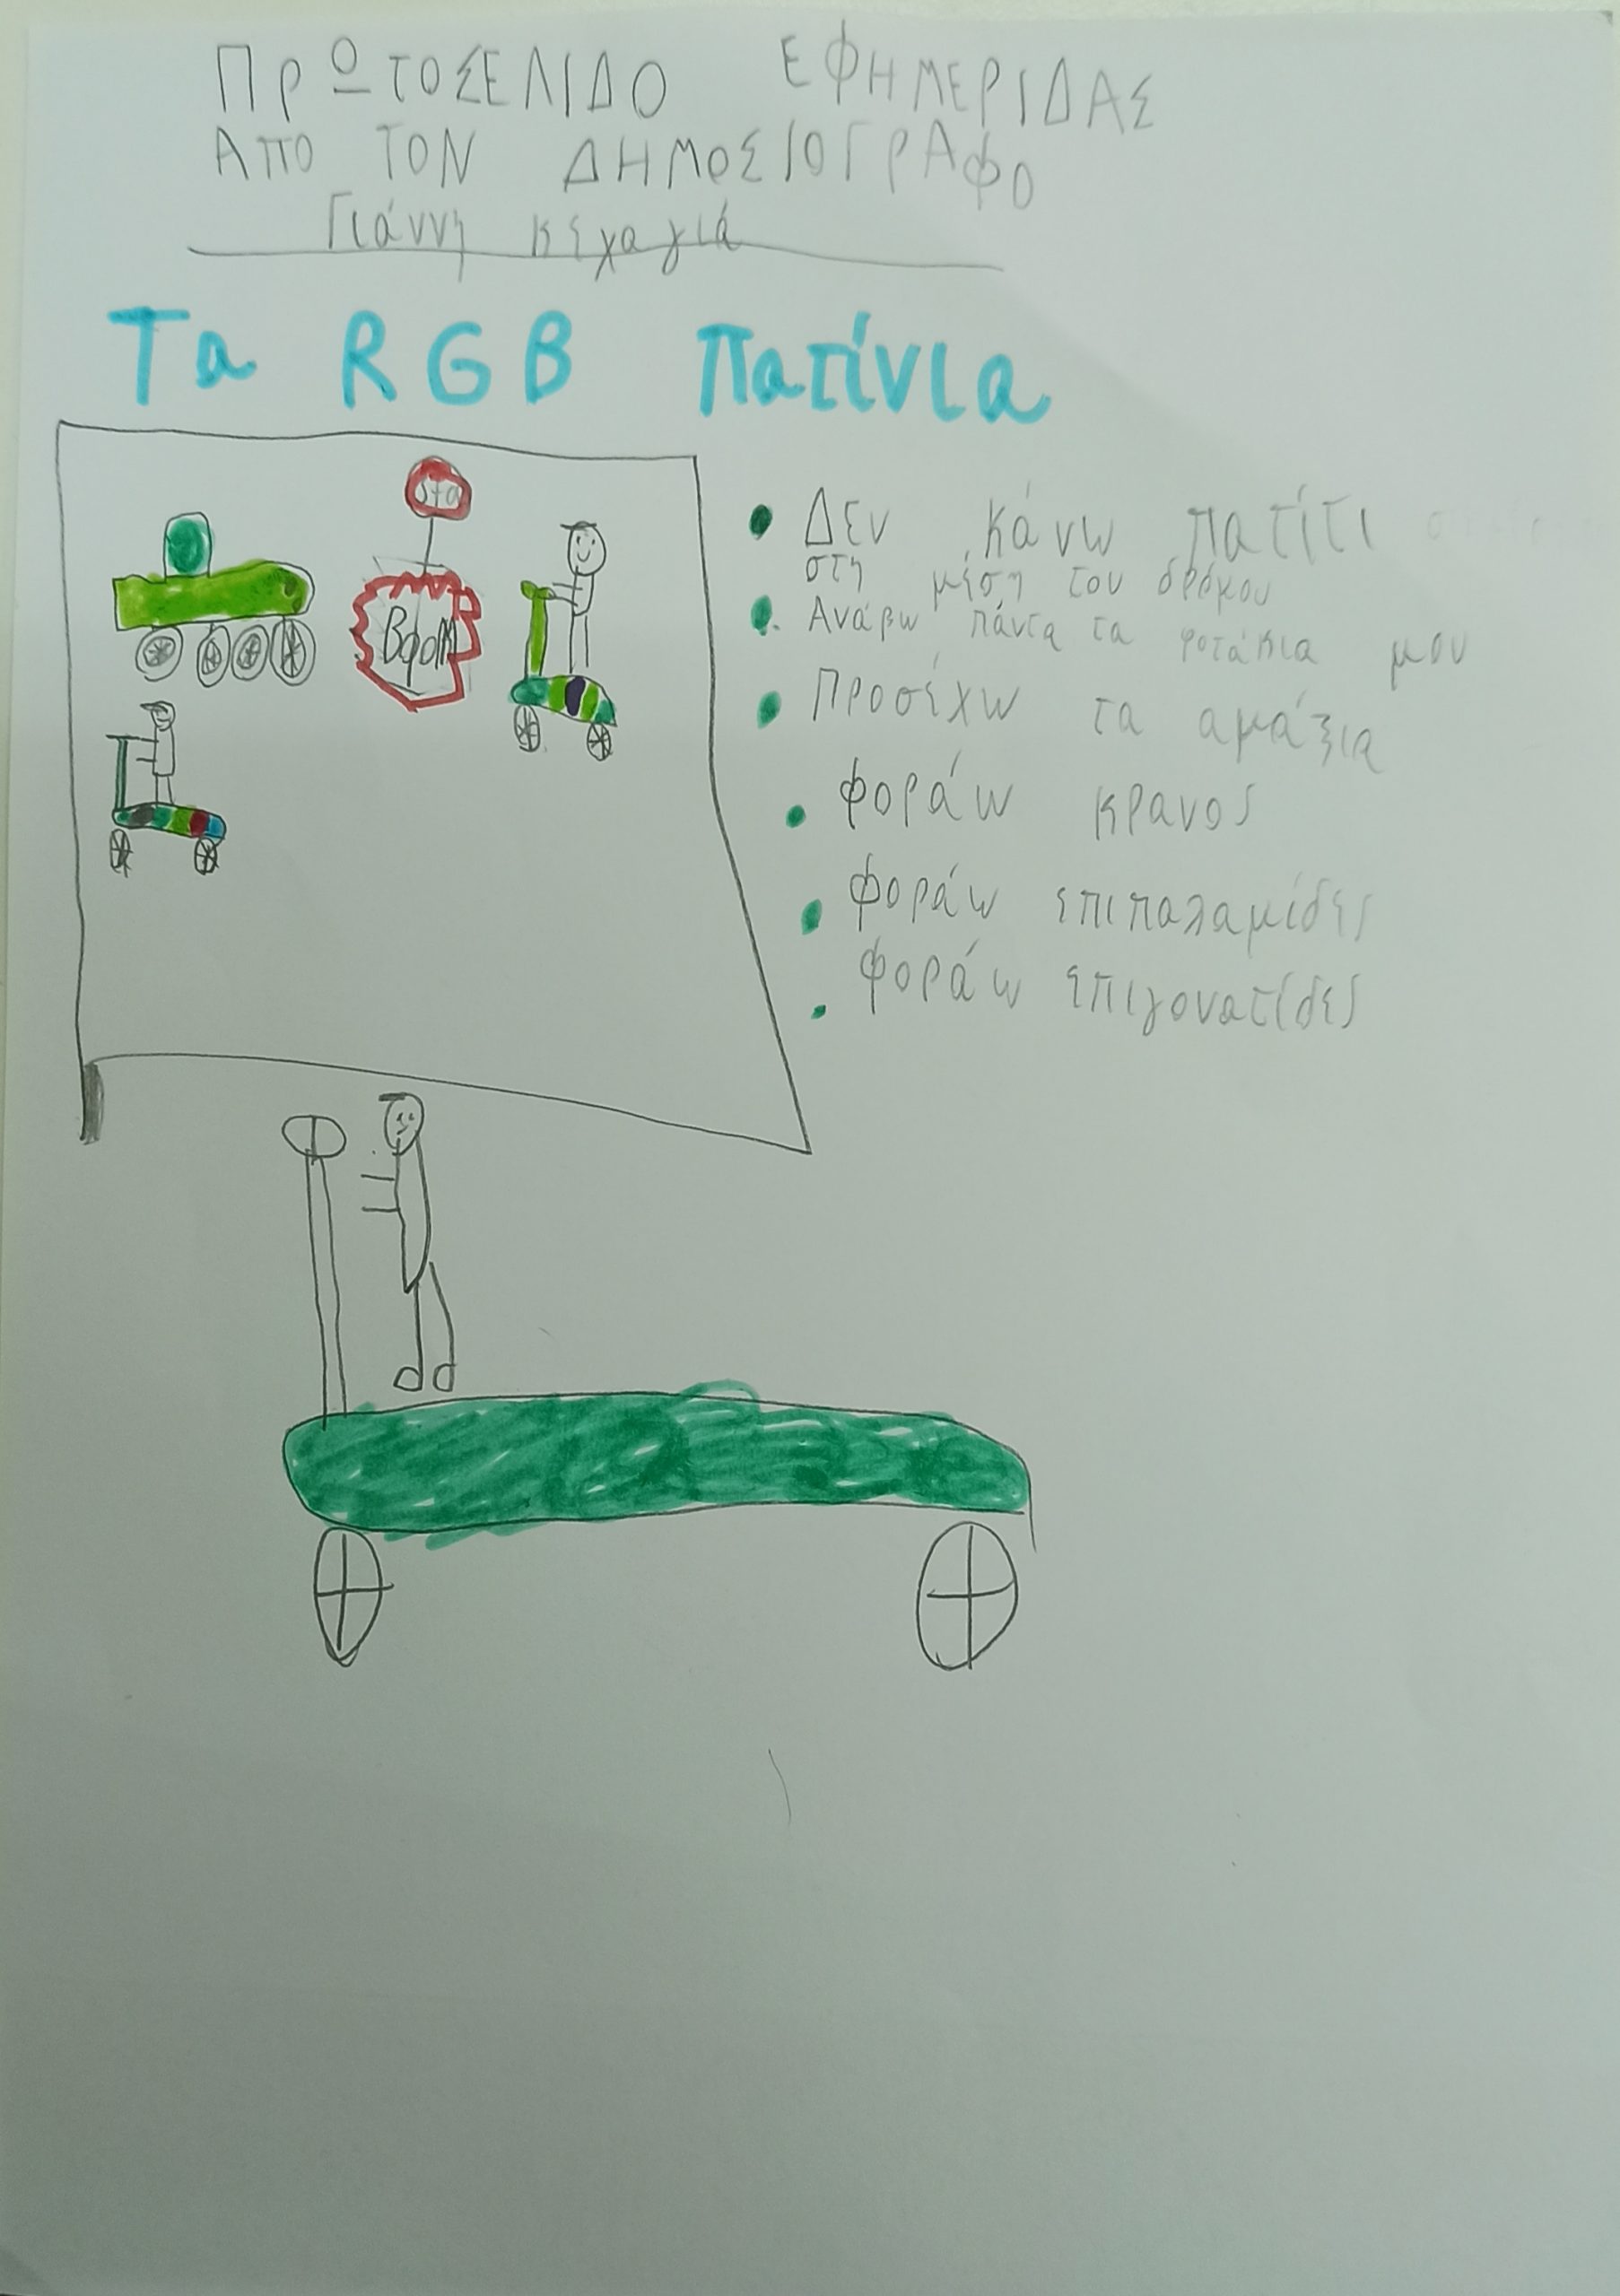 ΠΡΩΤΟΣΕΛΙΔΟ ΕΦΗΜΕΡΙΔΑΣ
ΑΠΟ ΤΟΝ ΔΗΜΟΣΙΟΓΡΑΦΟ
Γιάννη Κεχαγιά
Τα RGB πατίνια
Δεν κάνω πατίτι
στη μέση του δρόμου
Ανάβω πάντα τα φοτάκια μου
Προσέχω τα αμάξια
φοράω κρανος
φοράω επιπαλαμίδες
φοράω επιγονατίδες